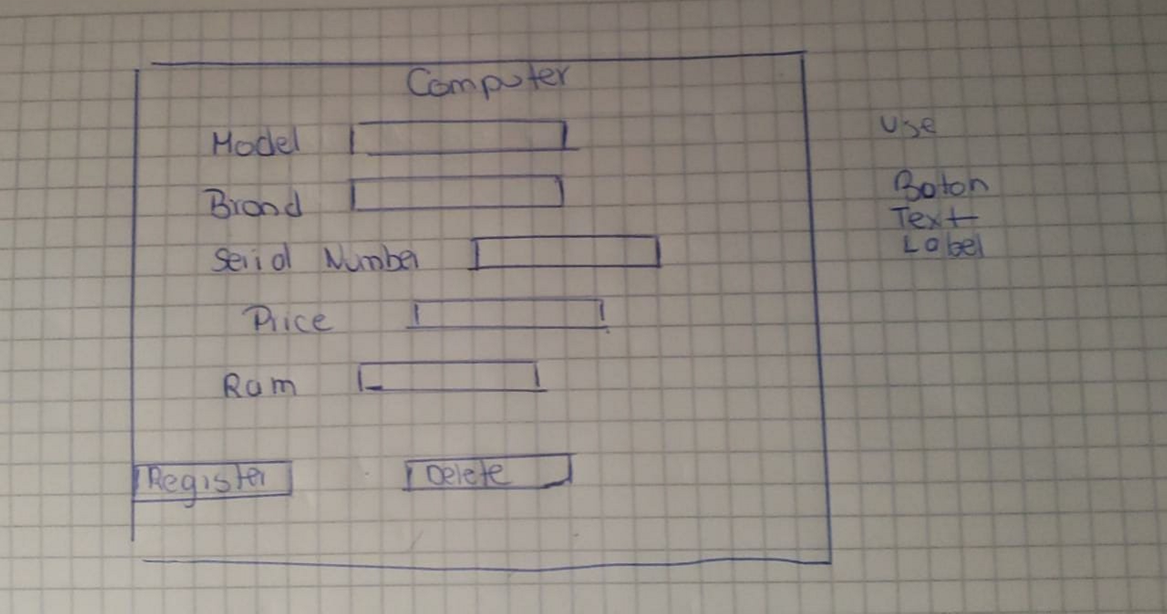 Computer
Model
Brand
Serial Number
Price
Ram
Register
Delete
Use
Boton
Text
Label